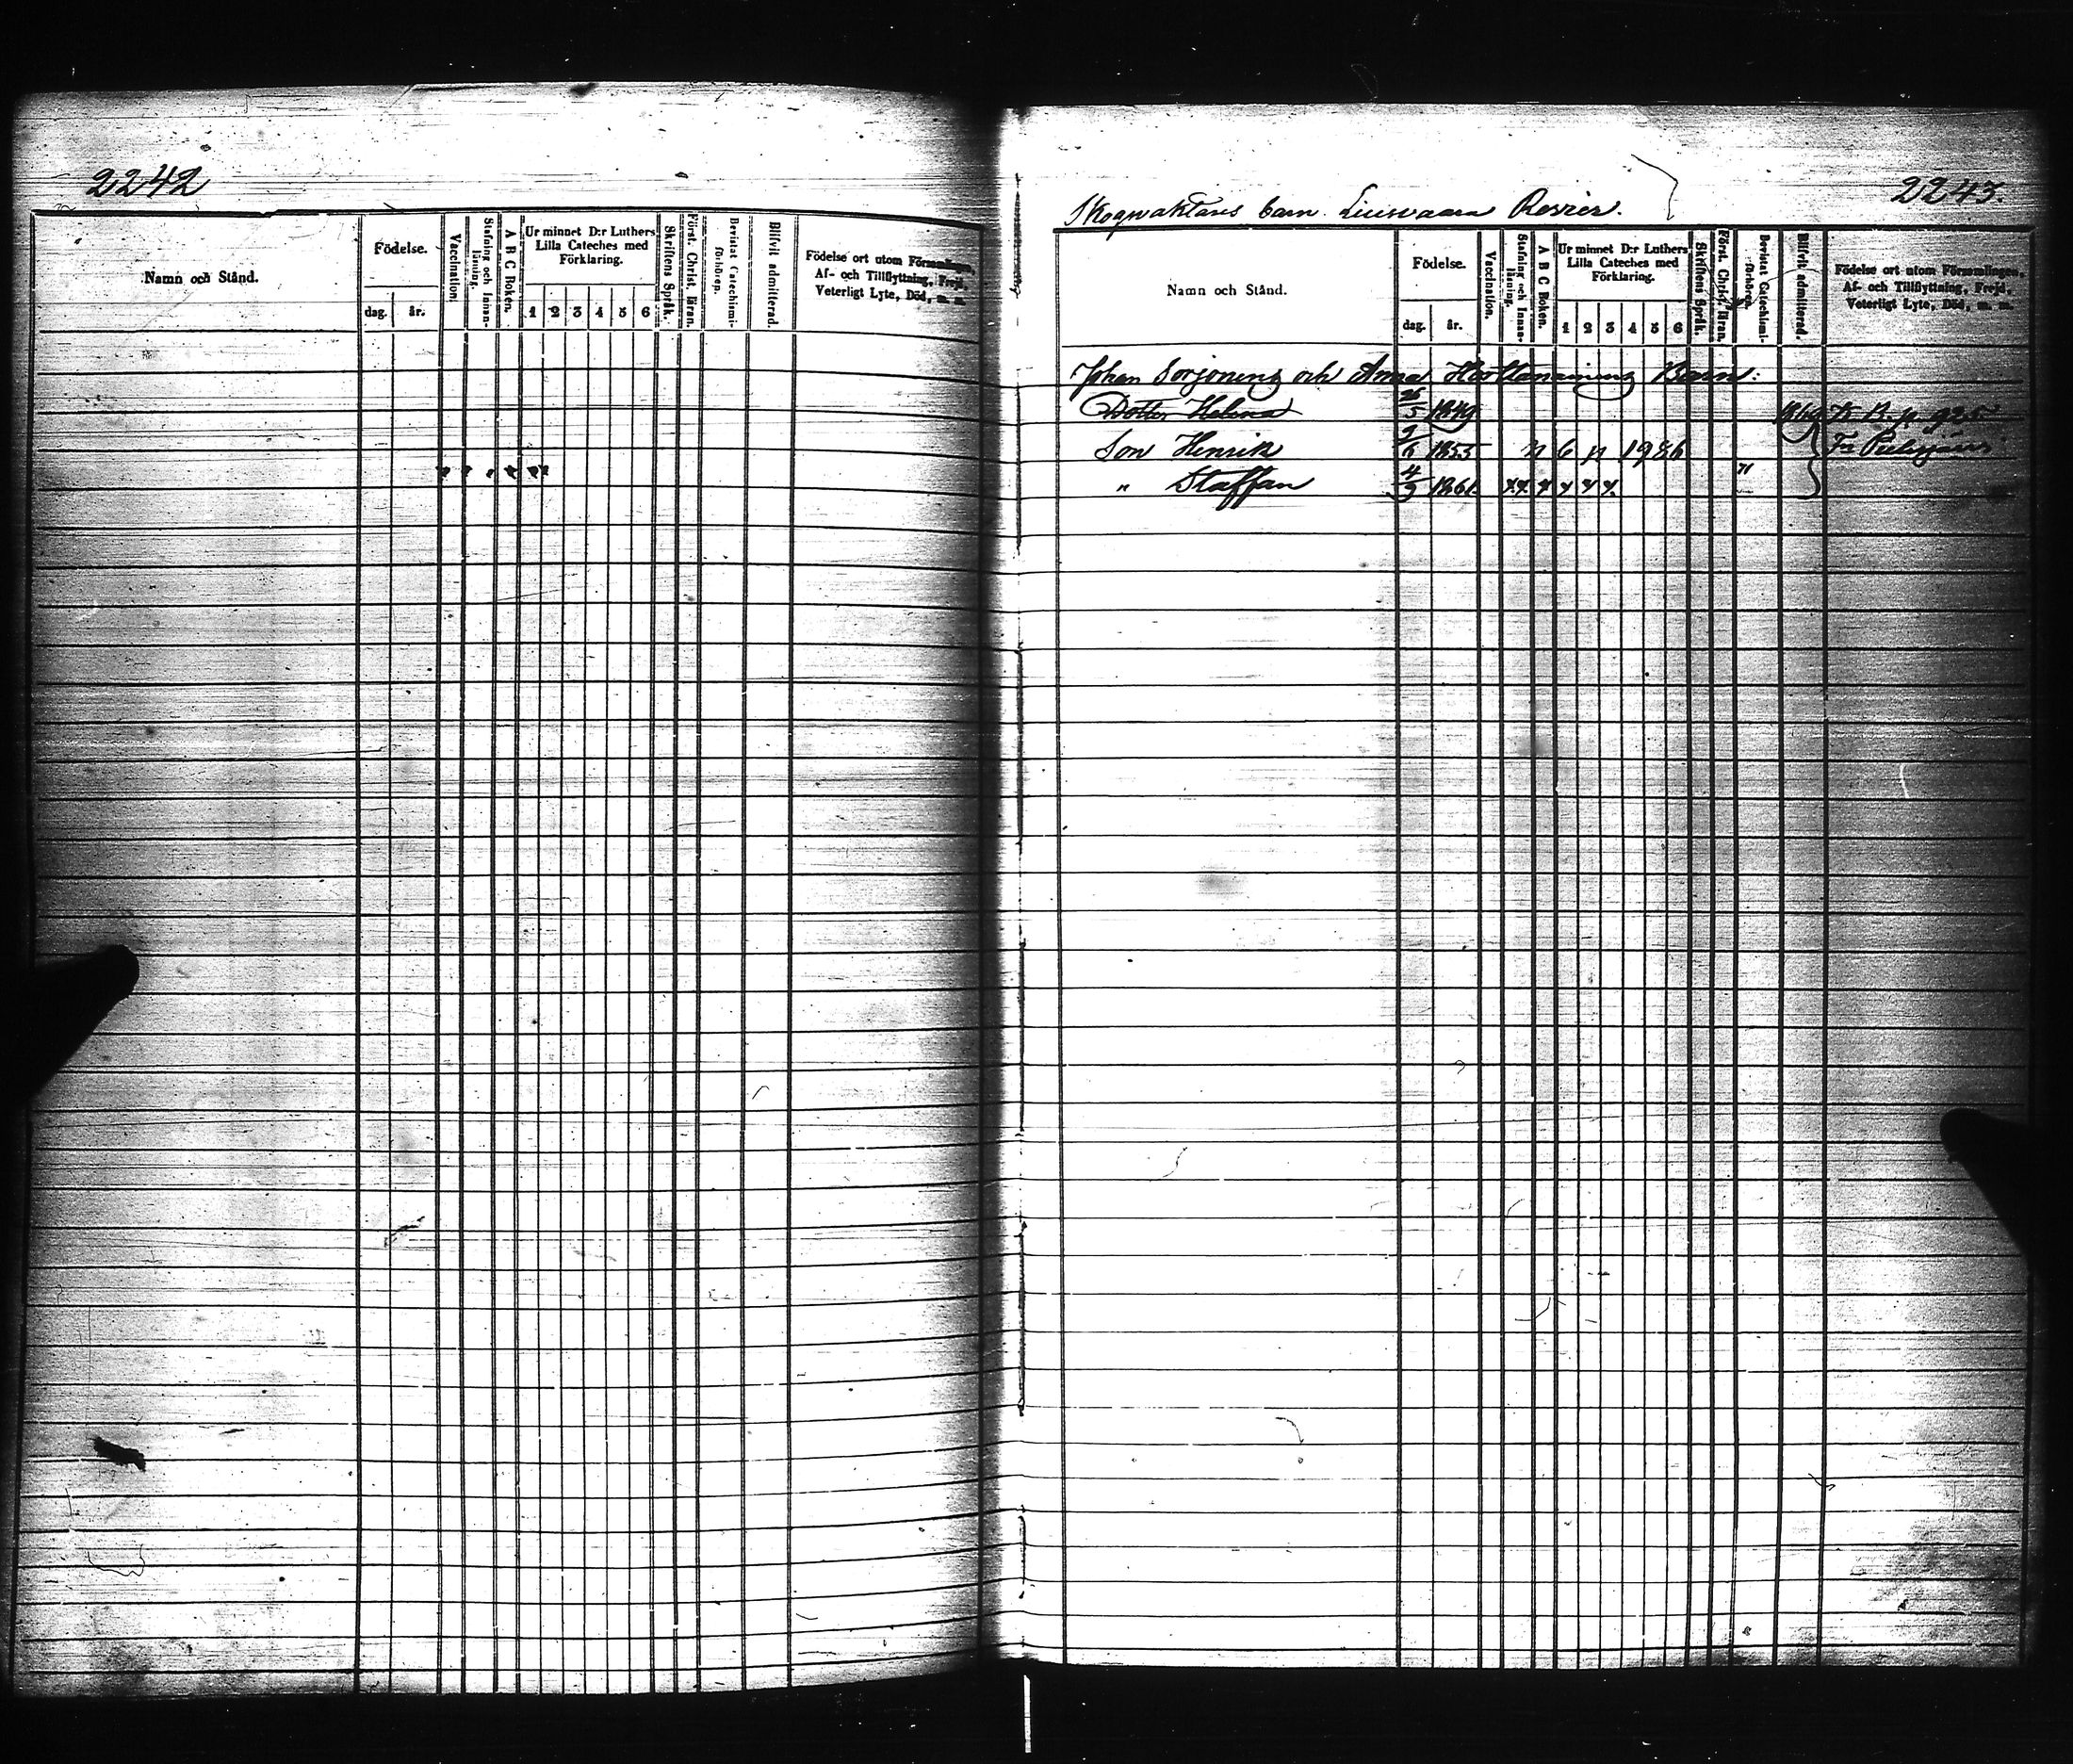 2242
Namn och Stånd.
Födelse.
dag.
år.
Vaccination.
Stafning och Innanläsning.
A B C Boken.
Ur minnet D:r Luthers
Lilla Cateches med
Förklaring.
1 2 3 4 5 6
Skriftens Språk.
Först. Christ. läran.
Bevistat Catechismiförhören.
Blifvit admitterad.
Födelse ort utom Församlingen,
Af- och Tillflyttning, Frejd,
Veterligt Lyte, Död, m. m.
2243.
Skogwaktares barn. Liuswaara Revier.
Namn och Stånd.
Födelse.
dag.
år.
Vaccination.
Stafning och Innanläsning.
A B C Boken.
Ur minnet D:r Luthers
Lilla Cateches med
Förklaring.
1 2 3 4 5 6
Skriftens Språk.
Först. Christ. läran.
Bevistat Catechismiförhören.
Blifvit admitterad.
Födelse ort utom Församlingen,
Af- och Tillflyttning, Frejd,
Veterligt Lyte, Död, m. m.
Johan Sorjonens och Anna Barn:
Dotter Helena 26/5 1849
Son Henrik 9/6 1855
" Staffan 4/9 1861.